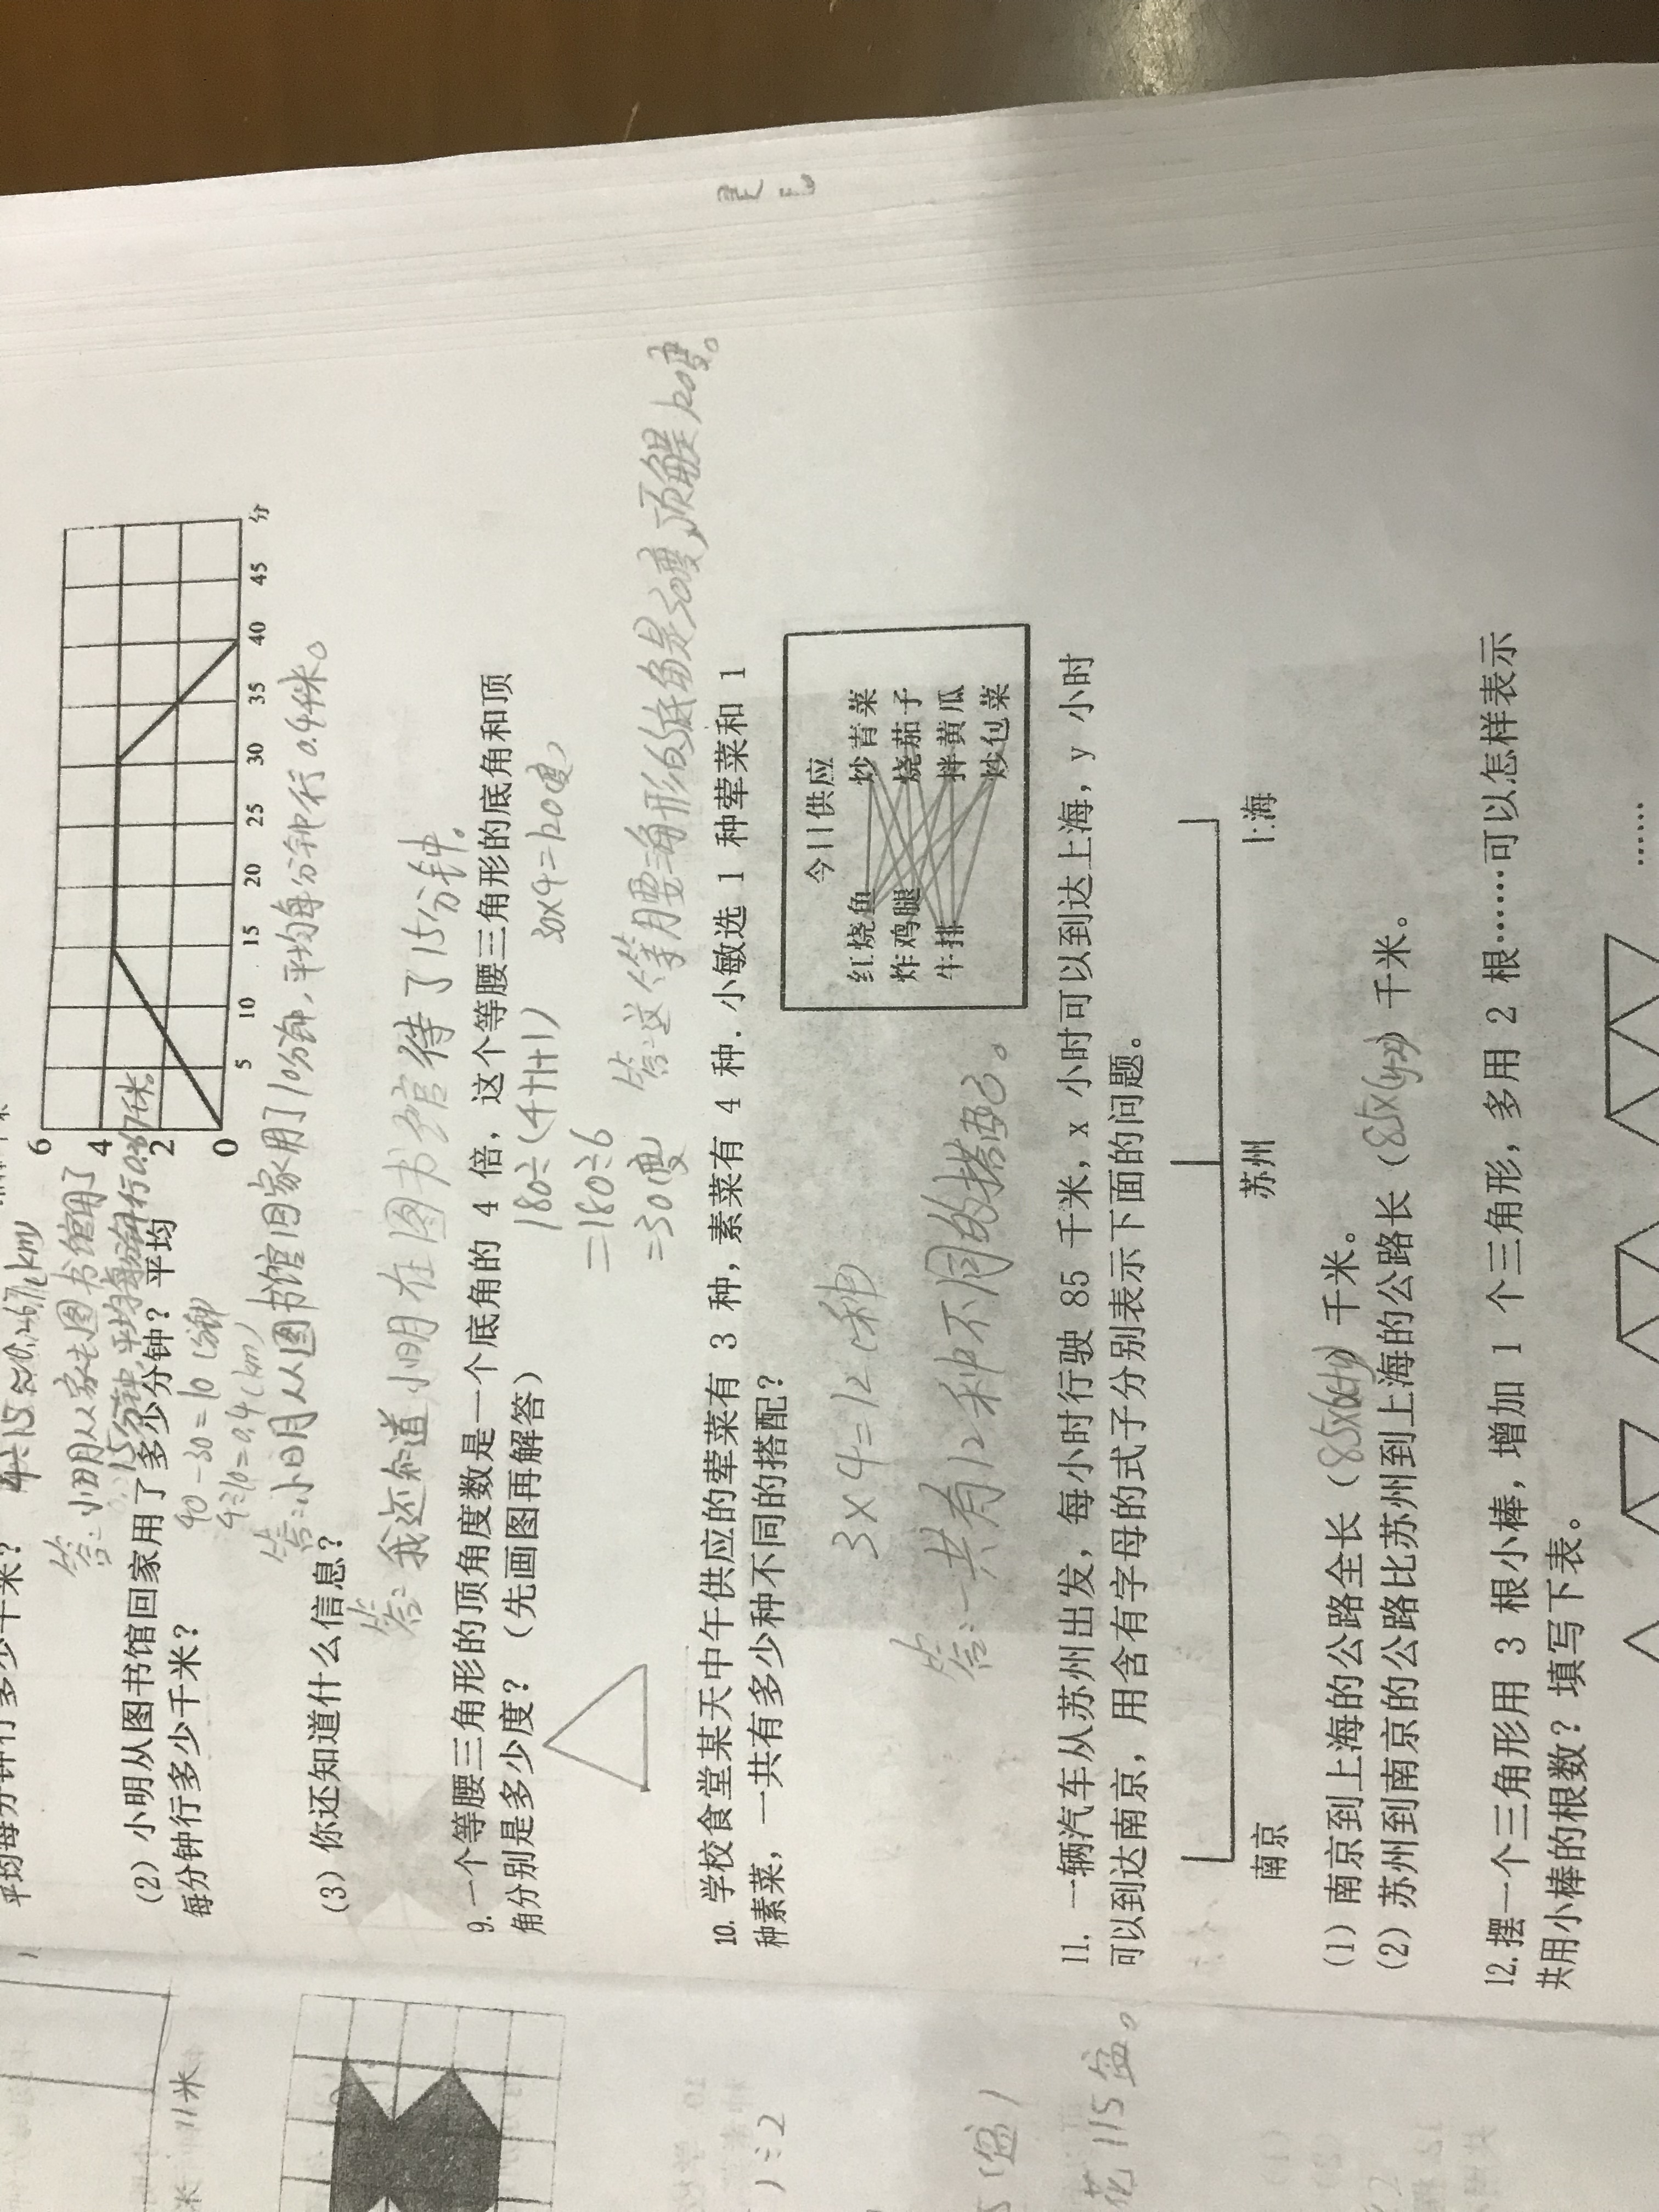 6
4
2
0
5
10
15
20
25
30
35
40
45
分
答:小明从家去图书馆用了
15分钟,平均每分钟行0.267千米。
(2) 小明从图书馆回家用了多少分钟? 平均
每分钟行多少千米?
40-30=10(分钟)
4÷10=0.4(km)
答:小明从图书馆回家用了10分钟,平均每分钟行0.4千米。
(3) 你还知道什么信息?
答:我还知道小明在图书馆待了15分钟。
9. 一个等腰三角形的顶角度数是一个底角的 4 倍, 这个等腰三角形的底角和顶
角分别是多少度? (先画图再解答)
180÷(4+1+1)
=180÷6
=30度
30×4=120度
答:这个等腰三角形的底角是30度,顶角是120度。
10. 学校食堂某天中午供应的荤菜有 3 种, 素菜有 4 种. 小敏选 1 种荤菜和 1
种素菜, 一共有多少种不同的搭配?
今日供应
红烧鱼 炒青菜
炸鸡腿 烧茄子
牛排 拌黄瓜
炒包菜
3×4=12(种)
答:一共有12种不同的搭配。
11. 一辆汽车从苏州出发, 每小时行驶 85 千米, x 小时可以到达上海, y 小时
可以到达南京, 用含有字母的式子分别表示下面的问题。
南京 苏州 上海
(1) 南京到上海的公路全长 (85×(x+y)) 千米。
(2) 苏州到南京的公路比苏州到上海的公路长 (85×(y-x)) 千米。
12. 摆一个三角形用 3 根小棒, 增加 1 个三角形, 多用 2 根……可以怎样表示
共用小棒的根数? 填写下表。
……
11米
)÷2
(盆)
花115盆。